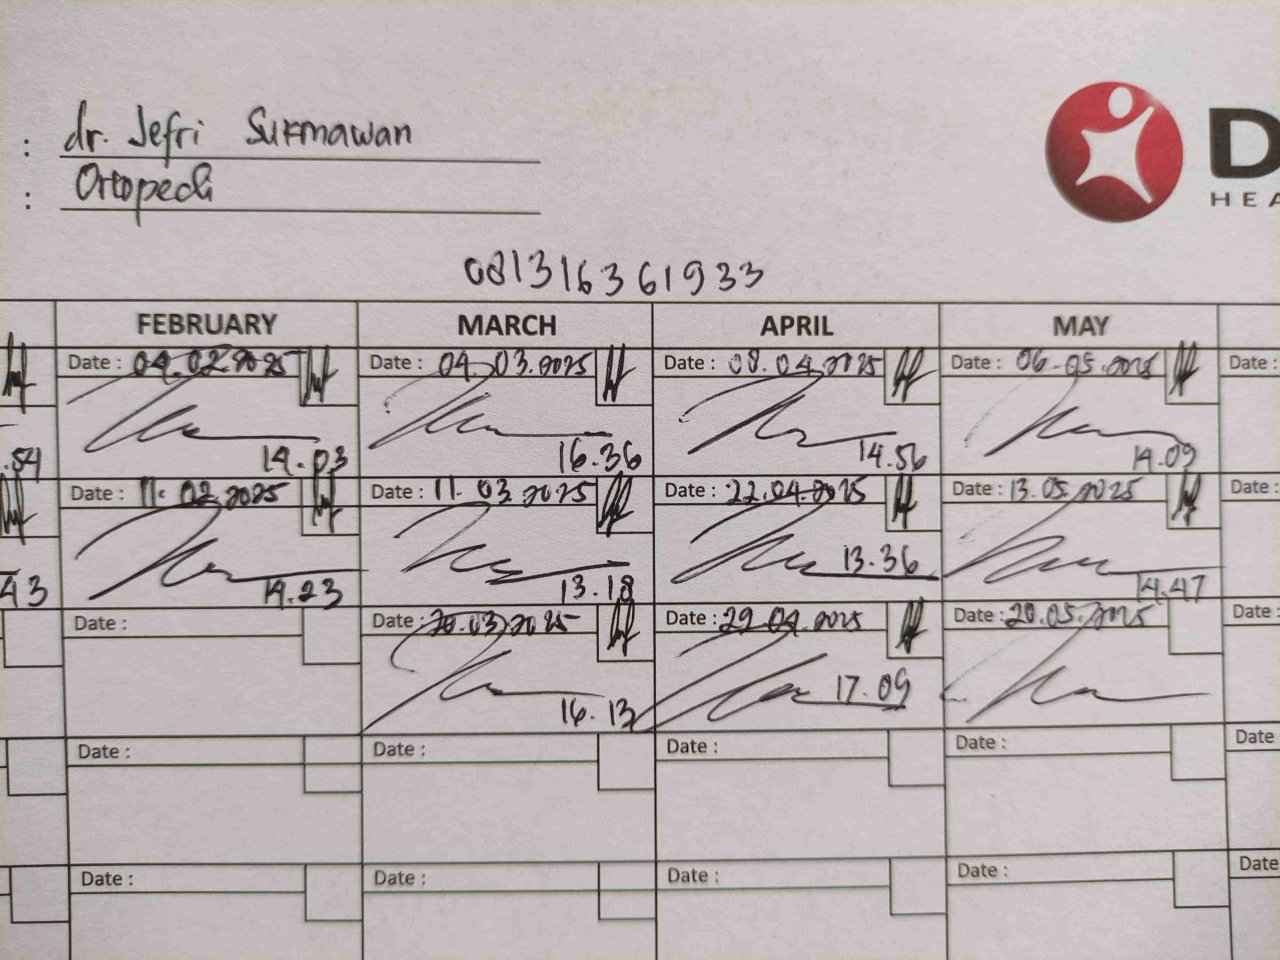 : dr. Jefri Sukmawan
: Ortopedi
D
HEA
081316361933
FEBRUARY MARCH APRIL MAY
Date : 04.02.2025 Date : 04.03.2025 Date : 08.04.2025 Date : 06.05.2025 Date :
.54 14.03 16.36 14.56 14.09
Date : 11.02.2025 Date : 11.03.2025 Date : 22.04.2025 Date : 13.05.2025 Date :
43 14.23 13.18 13.36 14.47
Date : Date : 20.03.2025 Date : 29.04.2025 Date : 20.05.2025 Date :
16.13 17.09
Date : Date : Date : Date : Date
Date : Date : Date : Date : Date